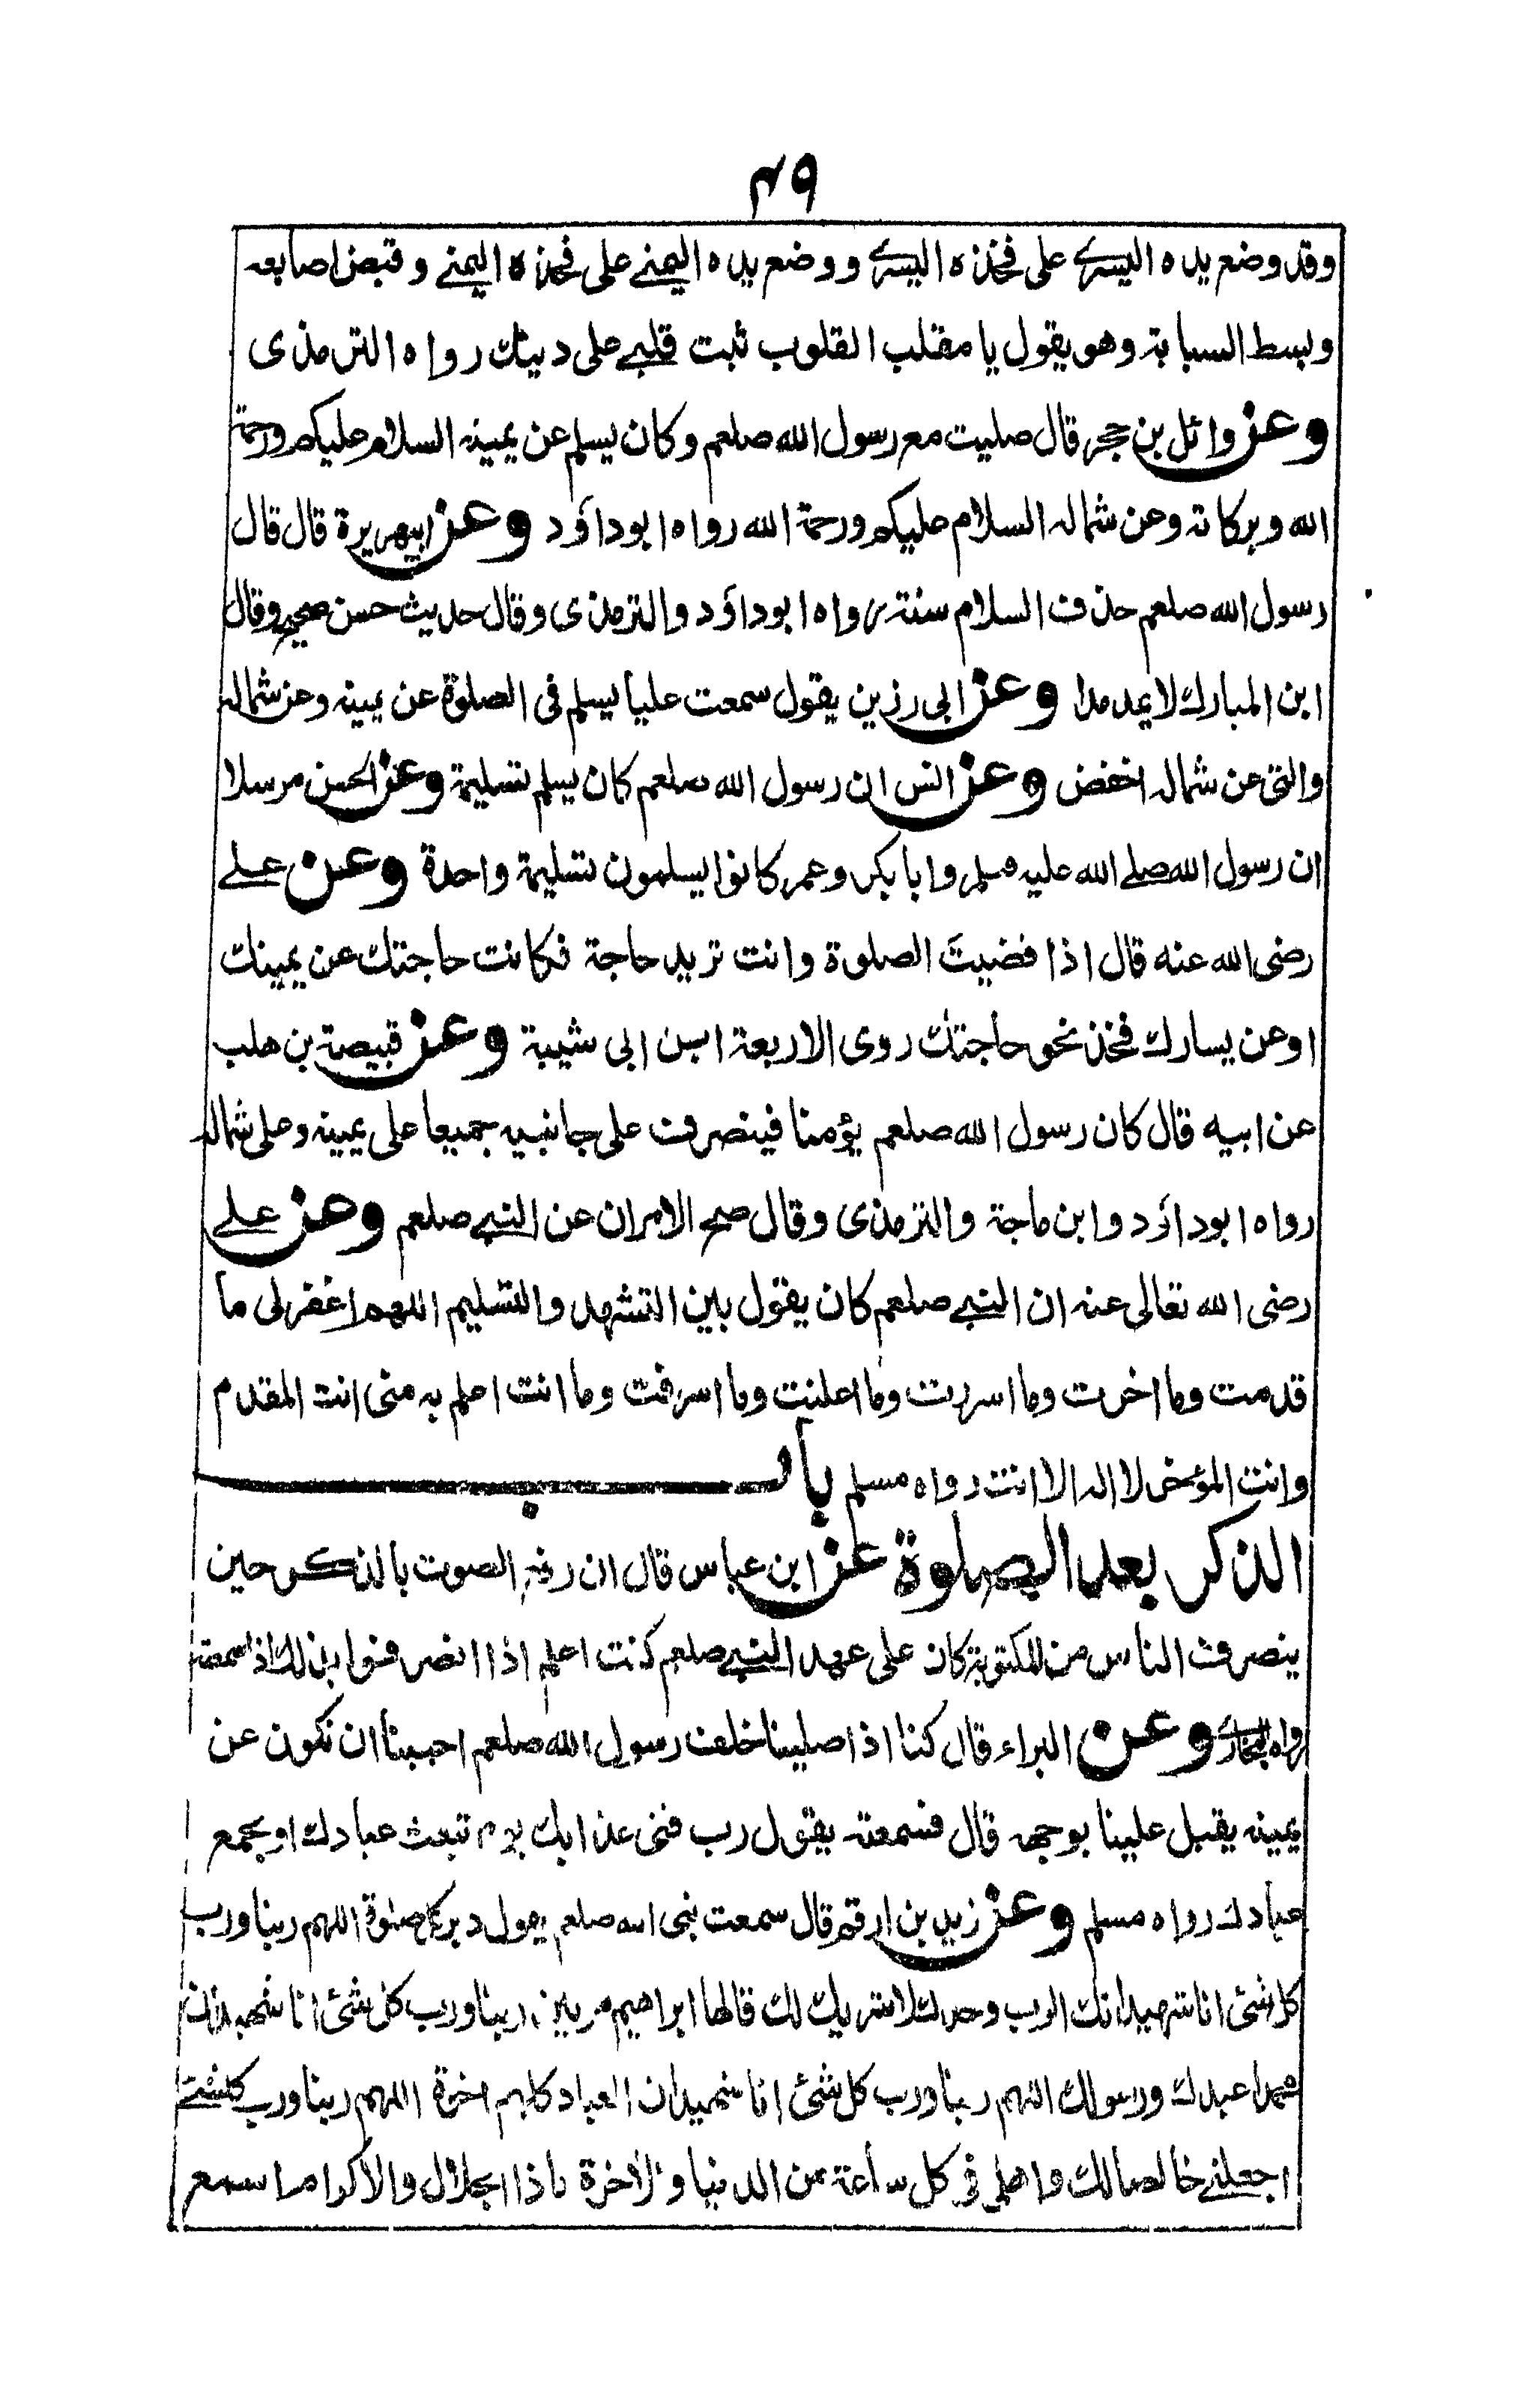 ۴۹
وقد وضع يده اليسرے على فخذه اليسرے ووضع يده اليمنے على فخذه اليمنے وقبض اصابعه
وبسط السبابة وهو يقول يا مقلب القلوب ثبت قلبے على دينك رواه الترمذى
وعن وائل بن حجر قال صليت مع رسول الله صلعم وكان يسلم عن يمينه السلام عليكم ورحمة
الله وبركاته وعن شماله السلام عليكم ورحمة الله رواه ابوداؤد وعن ابيهريرة قال قال
رسول الله صلعم حذف السلام سنة رواه ابوداؤد والترمذى وقال حديث حسن صحيح وقال
ابن المبارك لا يمد مدا وعن ابى رزين يقول سمعت عليا يسلم فى الصلوة عن يمينه وعن شماله
والتى عن شماله اخفض وعن انس ان رسول الله صلعم كان يسلم تسليمة وعن الحسن مرسلا
ان رسول الله صلے الله عليه وسلم وابا بكر وعمر كانوا يسلمون تسليمة واحدة وعن علے
رضى الله عنه قال اذا قضيتَ الصلوة وانت تريد حاجة فكانت حاجتك عن يمينك
اوعن يسارك فخذ نحو حاجتك روى الاربعة ابن ابى شيبة وعن قبيصة بن هلب
عن ابيه قال كان رسول الله صلعم يؤمنا فينصرف على جانبيه جميعا على يمينه وعلى شماله
رواه ابوداؤد وابن ماجة والترمذى وقال صح الامران عن النبے صلعم وعن علے
رضى الله تعالى عنه ان النبے صلعم كان يقول بين التشهد والتسليم اللهم اغفرلى ما
قدمت وما اخرت وما اسررت وما اعلنت وما اسرفت وما انت اعلم به منى انت المقدم
وانت المؤخر لا اله الا انت رواه مسلم باب
الذكر بعد الصلوة عن ابن عباس قال ان رفع الصوت بالذكر حين
ينصرف الناس من المكتوبة كان على عهد النبے صلعم كنت اعلم اذا انصرفوا بذلك اذا سمعته
رواه البخارے وعن البراء قال كنا اذا صلينا خلف رسول الله صلعم احببنا ان نكون عن
يمينه يقبل علينا بوجهه قال فسمعته يقول رب قنى عذابك يوم تبعث عبادك او تجمع
عبادك رواه مسلم وعن زيد بن ارقم قال سمعت نبى الله صلعم يقول دبر كل صلوة اللهم ربنا ورب
كل شئ انا شهيد انك الرب وحدك لا شريك لك قالها ابراهيم مرتين ربنا ورب كل شئ انا شهيد ان
محمدا عبدك ورسولك اللهم ربنا ورب كل شئ انا شهيد ان العباد كلهم اخوة اللهم ربنا ورب كلشے
اجعلنے خالصا لك واهلى فى كل ساعة من الدنيا والاخرة يا ذا الجلال والاكرام اسمع